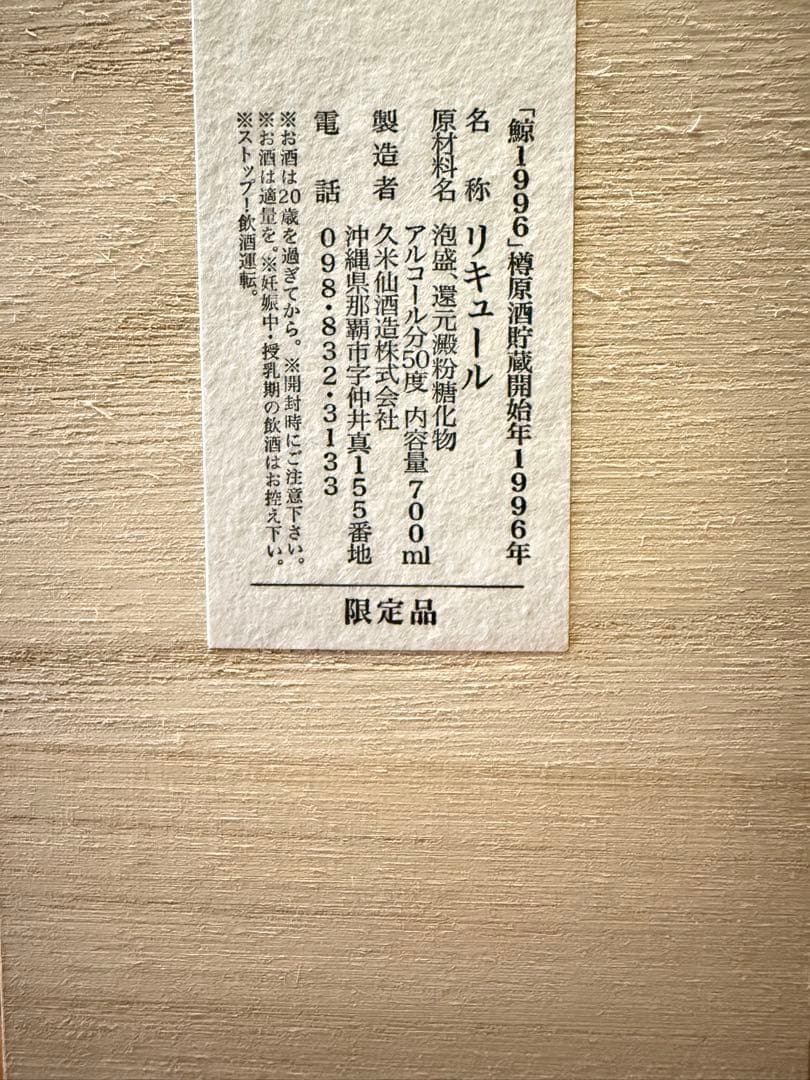 「鯨1996」樽原酒貯蔵開始年1996年
名称 リキュール
原材料名 泡盛、還元澱粉糖化物
アルコール分50度 内容量700ml
製造者 久米仙酒造株式会社
沖縄県那覇市字仲井真155番地
電話 098・832・3133
※お酒は20歳を過ぎてから。※開封時にご注意下さい。
※お酒は適量を。※妊娠中・授乳期の飲酒はお控え下い。
※ストップ！飲酒運転。
限定品